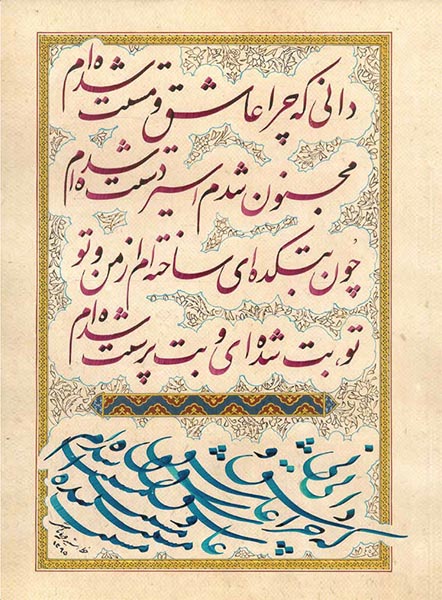 دانی که چرا عاشق و مست شده‌ام
مجنون شدم اسیر دست شده‌ام
چون بتکده‌ای ساخته‌ام از من و تو
تو بت شده‌ای و بت پرست شده‌ام
دانی که چرا عاشق و مست شده‌ام